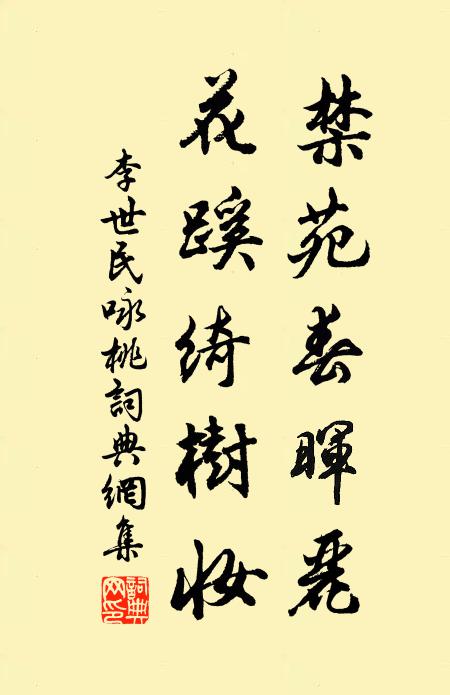 禁苑春暉麗
花蹊綺樹妝
李世民咏桃詞典網集
詞典网印